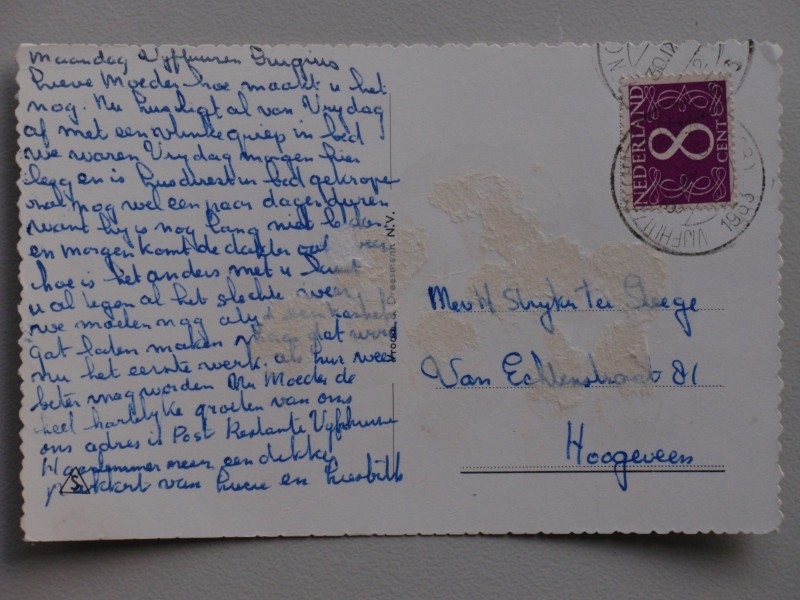 Maandag Vyfhuizen Cruquius
Lieve Moeder hoe maakt u het
nog. Nu ligt al van Vrydag
af met een griep in bed
we waren Vrydag morgen hier
en is bed gekropen
nog wel een paar dagen duren
want hy is nog lang niet beter
en morgen komt de dokter weer
hoe is het anders met u kunt
u al tegen al het slechte weer
we moeten nog altyd een
gat laten maken maar dat word
nu het eerste werk. als weer
beter mag worden Nu Moeder de
heel hartelyke groeten van ons
ons adres is Post Restante Vyfhuizen
Haarlemmermeer een dikke
van en Liesbeth
S
Vroom & Dreesmann N.V.
NEDERLAND
8
CENT
VIJFHUI
1963
Mev H Stryker Ter Steege
Van Echtenstraat 81
Hoogeveen